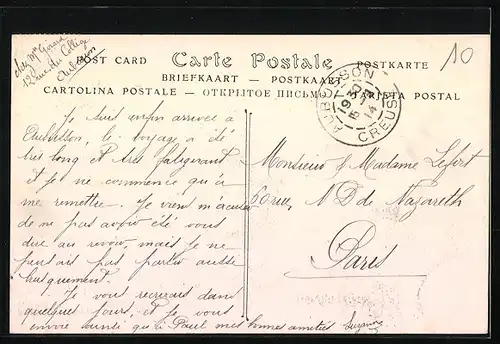 chez Mr Gérard
12 rue du Collège
Aubusson
POST CARD Carte Postale POSTKARTE
BRIEFKAART — POSTKAART
CARTOLINA POSTALE — ОТКРЫТОЕ ПИСЬМО TARJETA POSTAL
AUBUSSON
CREUSE
10
Je suis enfin arrivée à
Aubusson, le voyage a été
très long et très fatigant
et je ne commence qu'à
me remettre. Je viens m'excuser
de ne pas avoir été vous
dire au revoir, mais je ne
partir aussi
Je vous récrirais dans
quelques jours, et je vous
envoie ainsi que Paul mes bonnes amitiés Suzanne
Monsieur & Madame Lefort
60 rue, N D de Nazareth
Paris